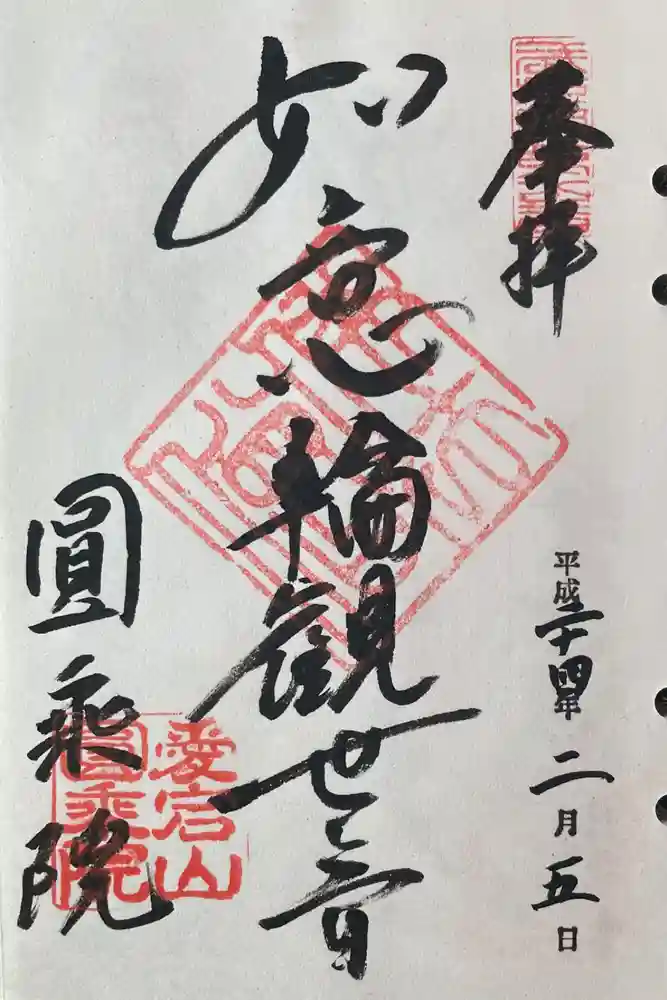 奉拝
平成二十四年二月五日
如意輪観世音
圓乘院
愛宕山
圓乗院